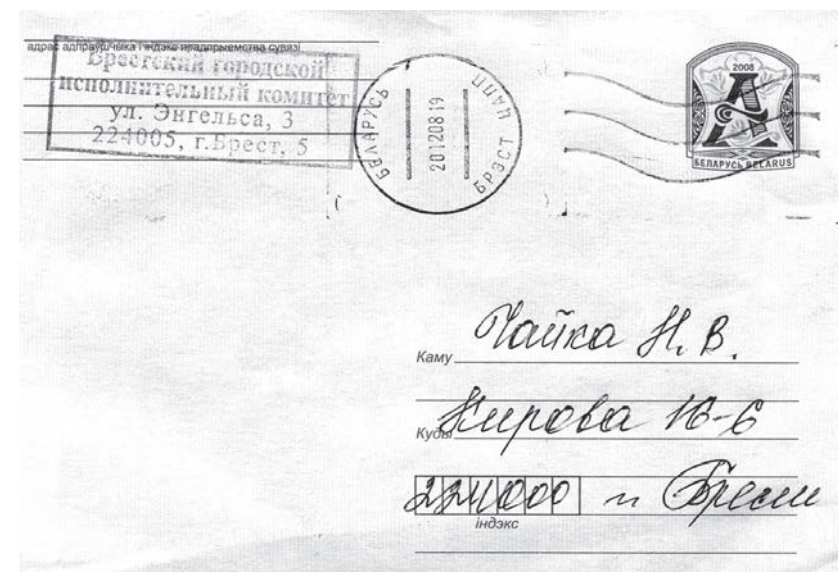 адрас адпраўшчыка і індэкс прадпрыемства сувязі
Брестский городской
исполнительный комитет
ул. Энгельса, 3
224005, г.Брест, 5
БЕЛАРУСЬ
20120819
БРЭСТ ЦАПП
2008
А
БЕЛАРУСЬ BELARUS
Каму Чайка Н. В.
Куды Кирова 16-6
224000 г Брест
індэкс